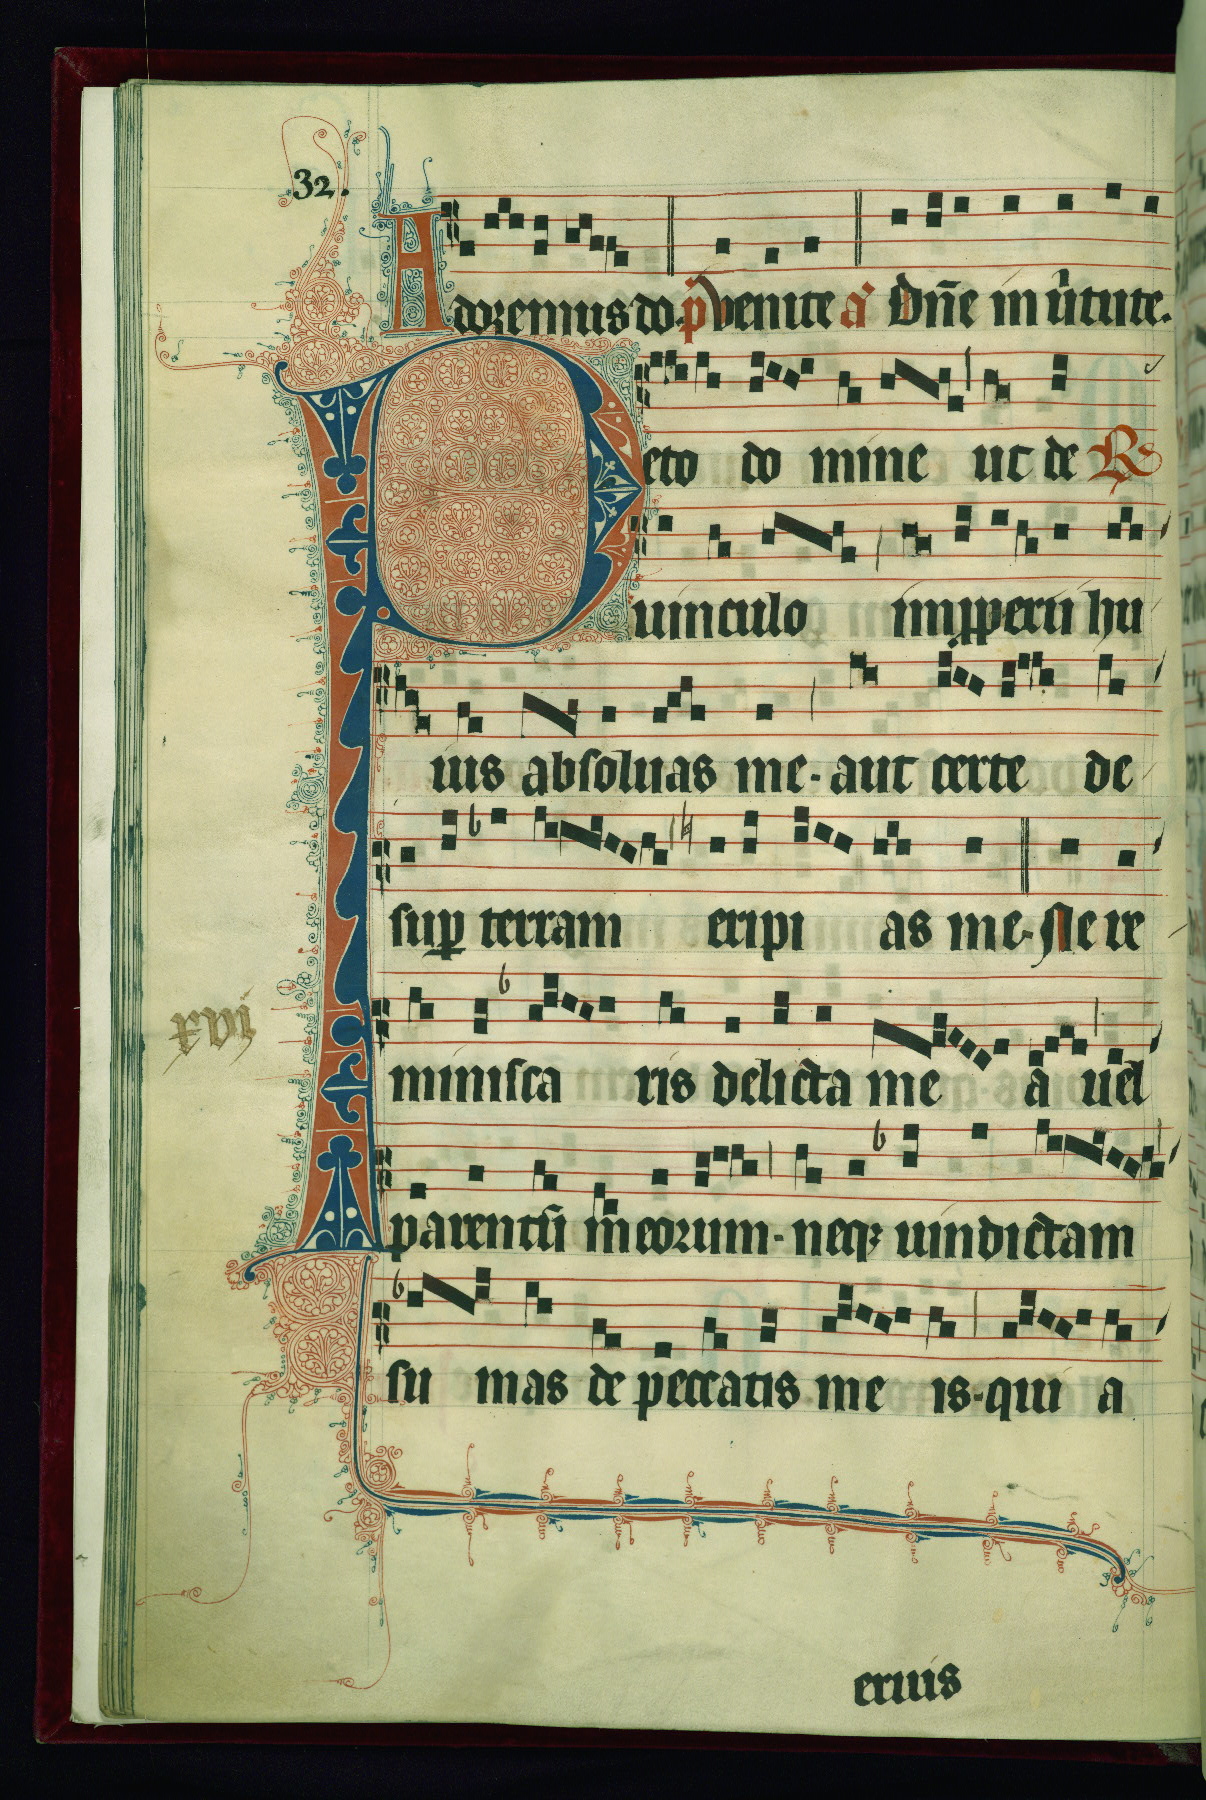 32.
Adoremus do. p̄s venite a᷑ Dn̄e in v̄tute.
Peto do mine ut de R
uinculo imꝓperii hu
ius absoluas me· aut certe de
suꝑ terram eripi as me· Ne re
miniſca ris delicta me a uel
parentū meorum· neqꝫ uindictam
su mas de peccatis me is· qui a
xvi
eruis